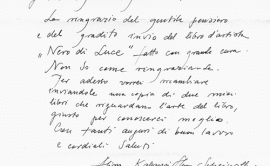 La ringrazio del gentile pensiero
e del gradito invio del libro d'artista
"Nero di Luce" fatto con grande cura.
Non so come ringraziarLa.
Per adesso vorrei ricambiare
inviandole una copia di due miei
libri che riguardano l'arte del libro,
giusto per conoscerci meglio.
Con tanti auguri di buon lavoro
e cordiali saluti